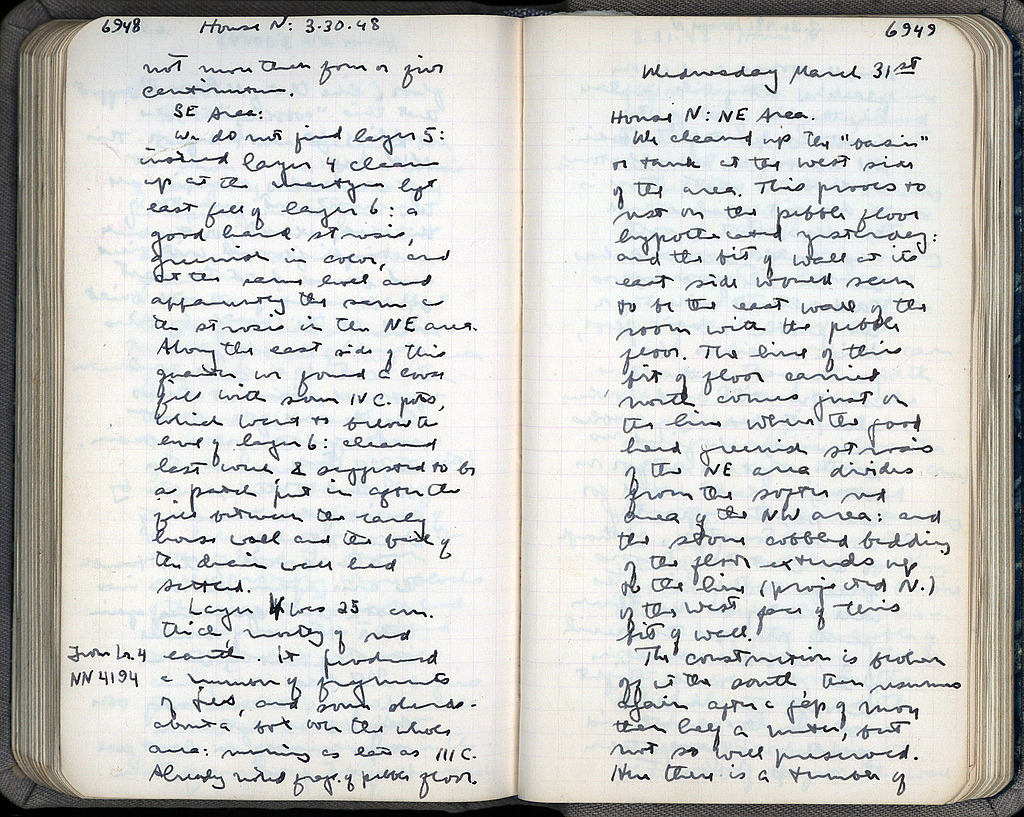 6948 House N: 3.30.48
not more than form or give
continuation.
SE Area:
We do not find layer 5:
instead layer 4 cleans
up at the
east fill of layer 6: a
good hard strosis,
greenish in color, and
at the same level and
apparently the same as
the strosis in the NE area.
Along the east side of this
quarter we found a loose
fill with some IV C. pots,
which went to below the
level of layer 6: cleaned
last week & suggested to be
a patch put in after the
fill between the early
house wall and the back of
the drain wall had
settled.
Layer 4 was 25 cm.
thick, mostly of red
earth. It produced
From Lr. 4
NN 4194
a number of fragments
of figs, and some sherds -
about a box over the whole
area: running as late as III C.
Already mixed frags. of pebble floor.
6949
Wednesday March 31st
House N: NE Area.
We cleaned up the "basin"
or tank at the west side
of the area. This proves to
rest on the pebble floor
hypothecated yesterday:
and the bit of wall at its
east side would seem
to be the east wall of the
room with the pebble
floor. The line of this
bit of floor carried
north comes just on
the line where the good
hard greenish strosis
of the NE area divides
from the softer red
area of the NW area: and
the stone cobbled bedding
of the floor extends up
to the line (projected N.)
of the west face of this
bit of wall.
The construction is broken
off at the south, then resumes
again after a gap of more
than half a meter, but
not so well preserved.
Here there is a number of